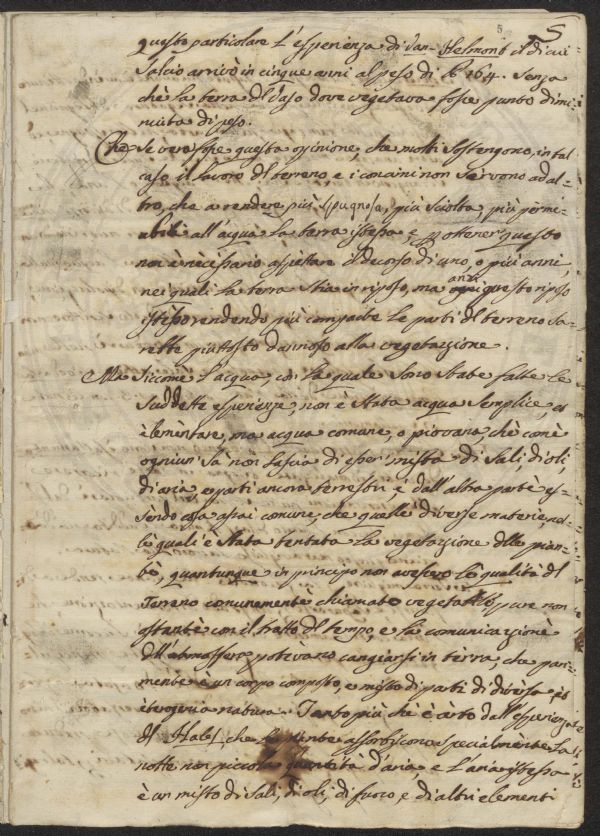 5 5
questo particolare l'esperienza di Van-Helmont il di cui
Salcio arrivò in cinque anni al peso di lb 164. Senza
chè la terra del Vaso dove vegetava fosse punto dimi
nuita di peso.
Che se vera fosse questa opinione, che molti sostengono, in tal
caso il lavoro del terreno, e i concimi non servono ad al-
tro, che a rendere più spugnosa, più sciolta, più permi-
abile all'acqua la terra istessa, e p ottener questo
non è necessario aspettare il decorso di uno, o più anni,
nei quali la terra stia in riposo, ma anzi questo riposo
istesso rendendo più compatte le parti del terreno sa-
rebbe piuttosto dannoso alla vegetazione.
Ma siccome l'acqua, con la quale sono state fatte le
suddette esperienze, non è stata acqua semplice, ed
elementare, ma acqua comune, o piovana, chè com'è
ogniun sà non lascia di esser mista di sali, di oli,
di aria, e parti ancora terrestri, e dall'altra parte es-
sendo cosa assai comune, che quelle diverse materie nel-
le quali è stata tentata la vegetazione delle pian-
te, quantunque in principio non avessero le qualità del
Terreno comunemente chiamato vegetabile, pure non
ostante con il tratto del tempo, e la comunicazione
dell'atmosfera potevano cangiarsi in terra, che pari-
mente è un corpo composto, e misto di parti di diversa, ed
eterogenia natura. Tanto più chè è certo dall'esperienza
del Hales, che le piante assorbiscono specialmente la
notte non piccola quantità d'aria, e l'aria istessa
è un misto di sali, di oli, di fuoco, e di altri elementi